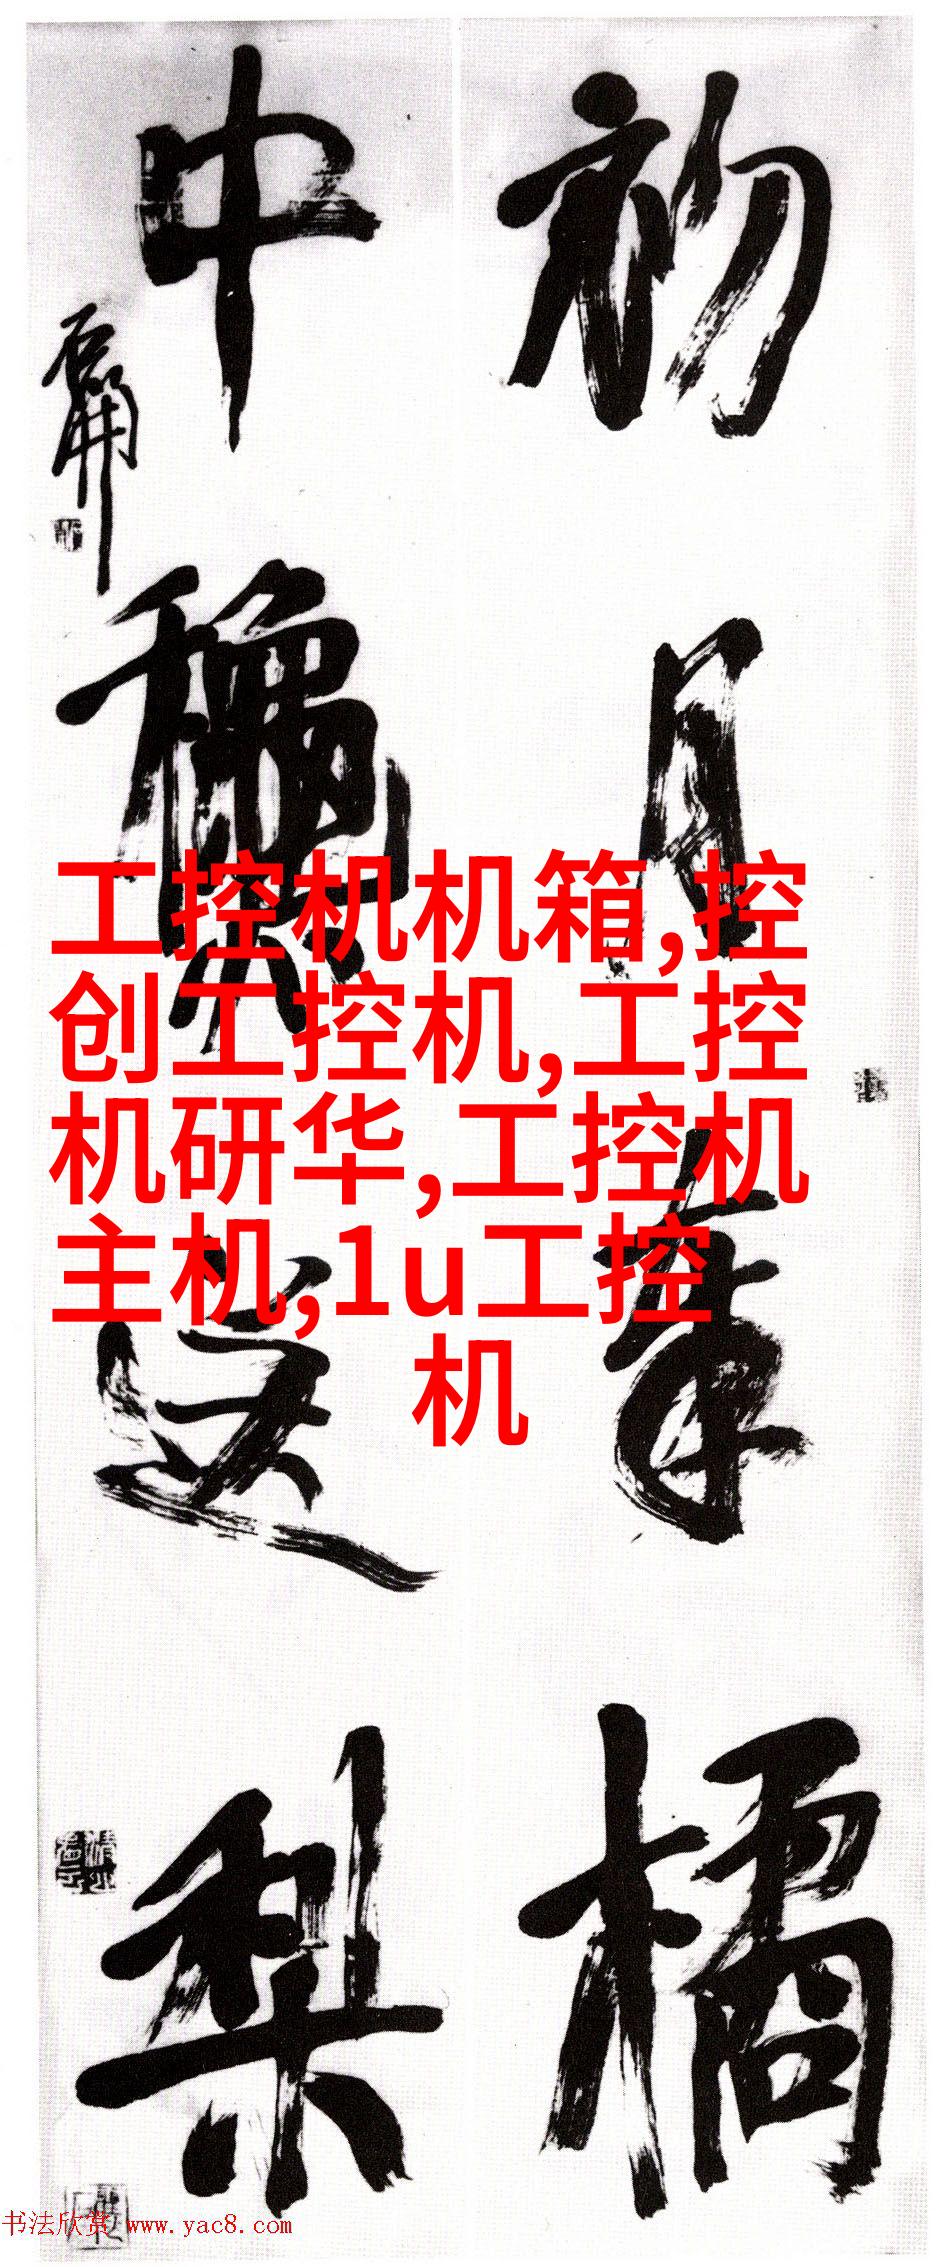 初月奉橘
中龝送梨
石開
工控机机箱,控
创工控机,工控
机研华,工控机
主机,1u工控
机
书法欣赏 www.yac8.com